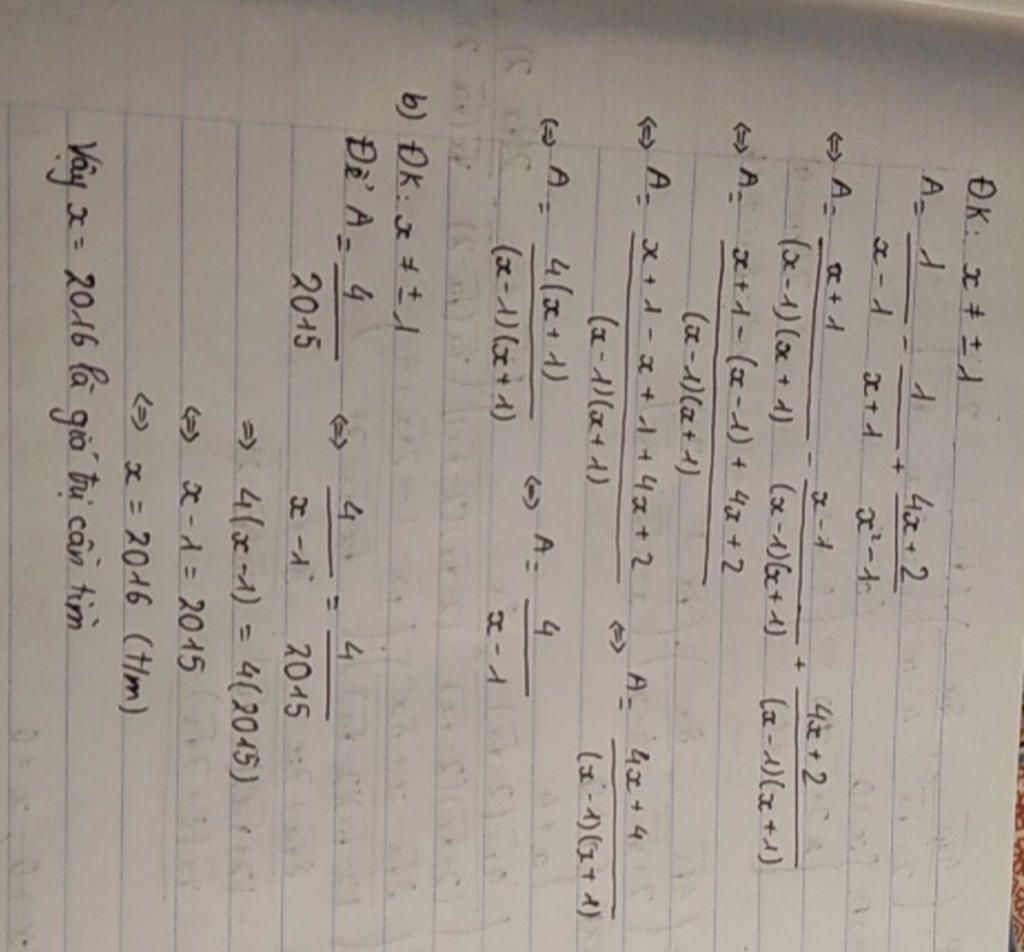 ĐK: x ≠ ± 1
A = 1/(x-1) - 1/(x+1) + (4x+2)/(x²-1)
<=> A = (x+1)/((x-1)(x+1)) - (x-1)/((x-1)(x+1)) + (4x+2)/((x-1)(x+1))
<=> A = (x+1-(x-1)+4x+2)/((x-1)(x+1))
<=> A = (x+1-x+1+4x+2)/((x-1)(x+1)) <=> A = (4x+4)/((x-1)(x+1))
<=> A = 4(x+1)/((x-1)(x+1)) <=> A = 4/(x-1)
b) ĐK: x ≠ ± 1
Để A = 4/2015 <=> 4/(x-1) = 4/2015
=> 4(x-1) = 4(2015)
<=> x-1 = 2015
<=> x = 2016 (t/m)
Vậy x = 2016 là giá trị cần tìm